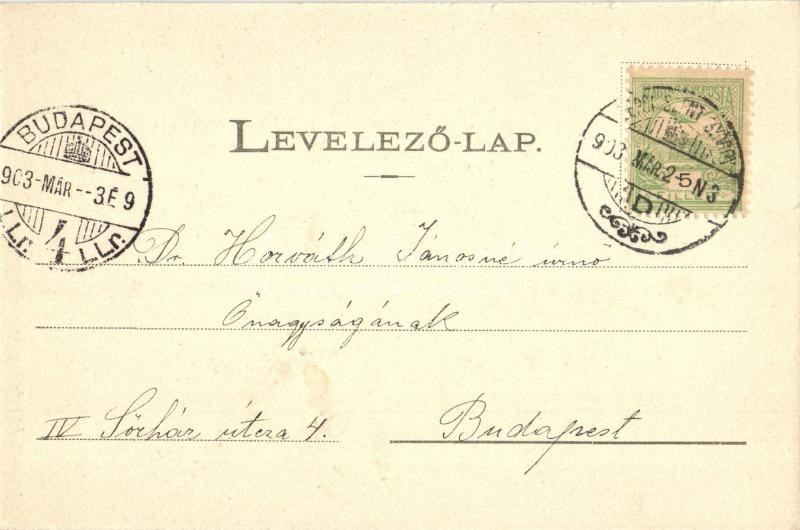 LEVELEZŐ-LAP.
BUDAPEST
903-MÁR--3.E 9
903 MÁR. 25 N 3
D
Dr. Horváth Jánosné úrnő
Őnagyságának
IV Sörház útcza 4.
Budapest